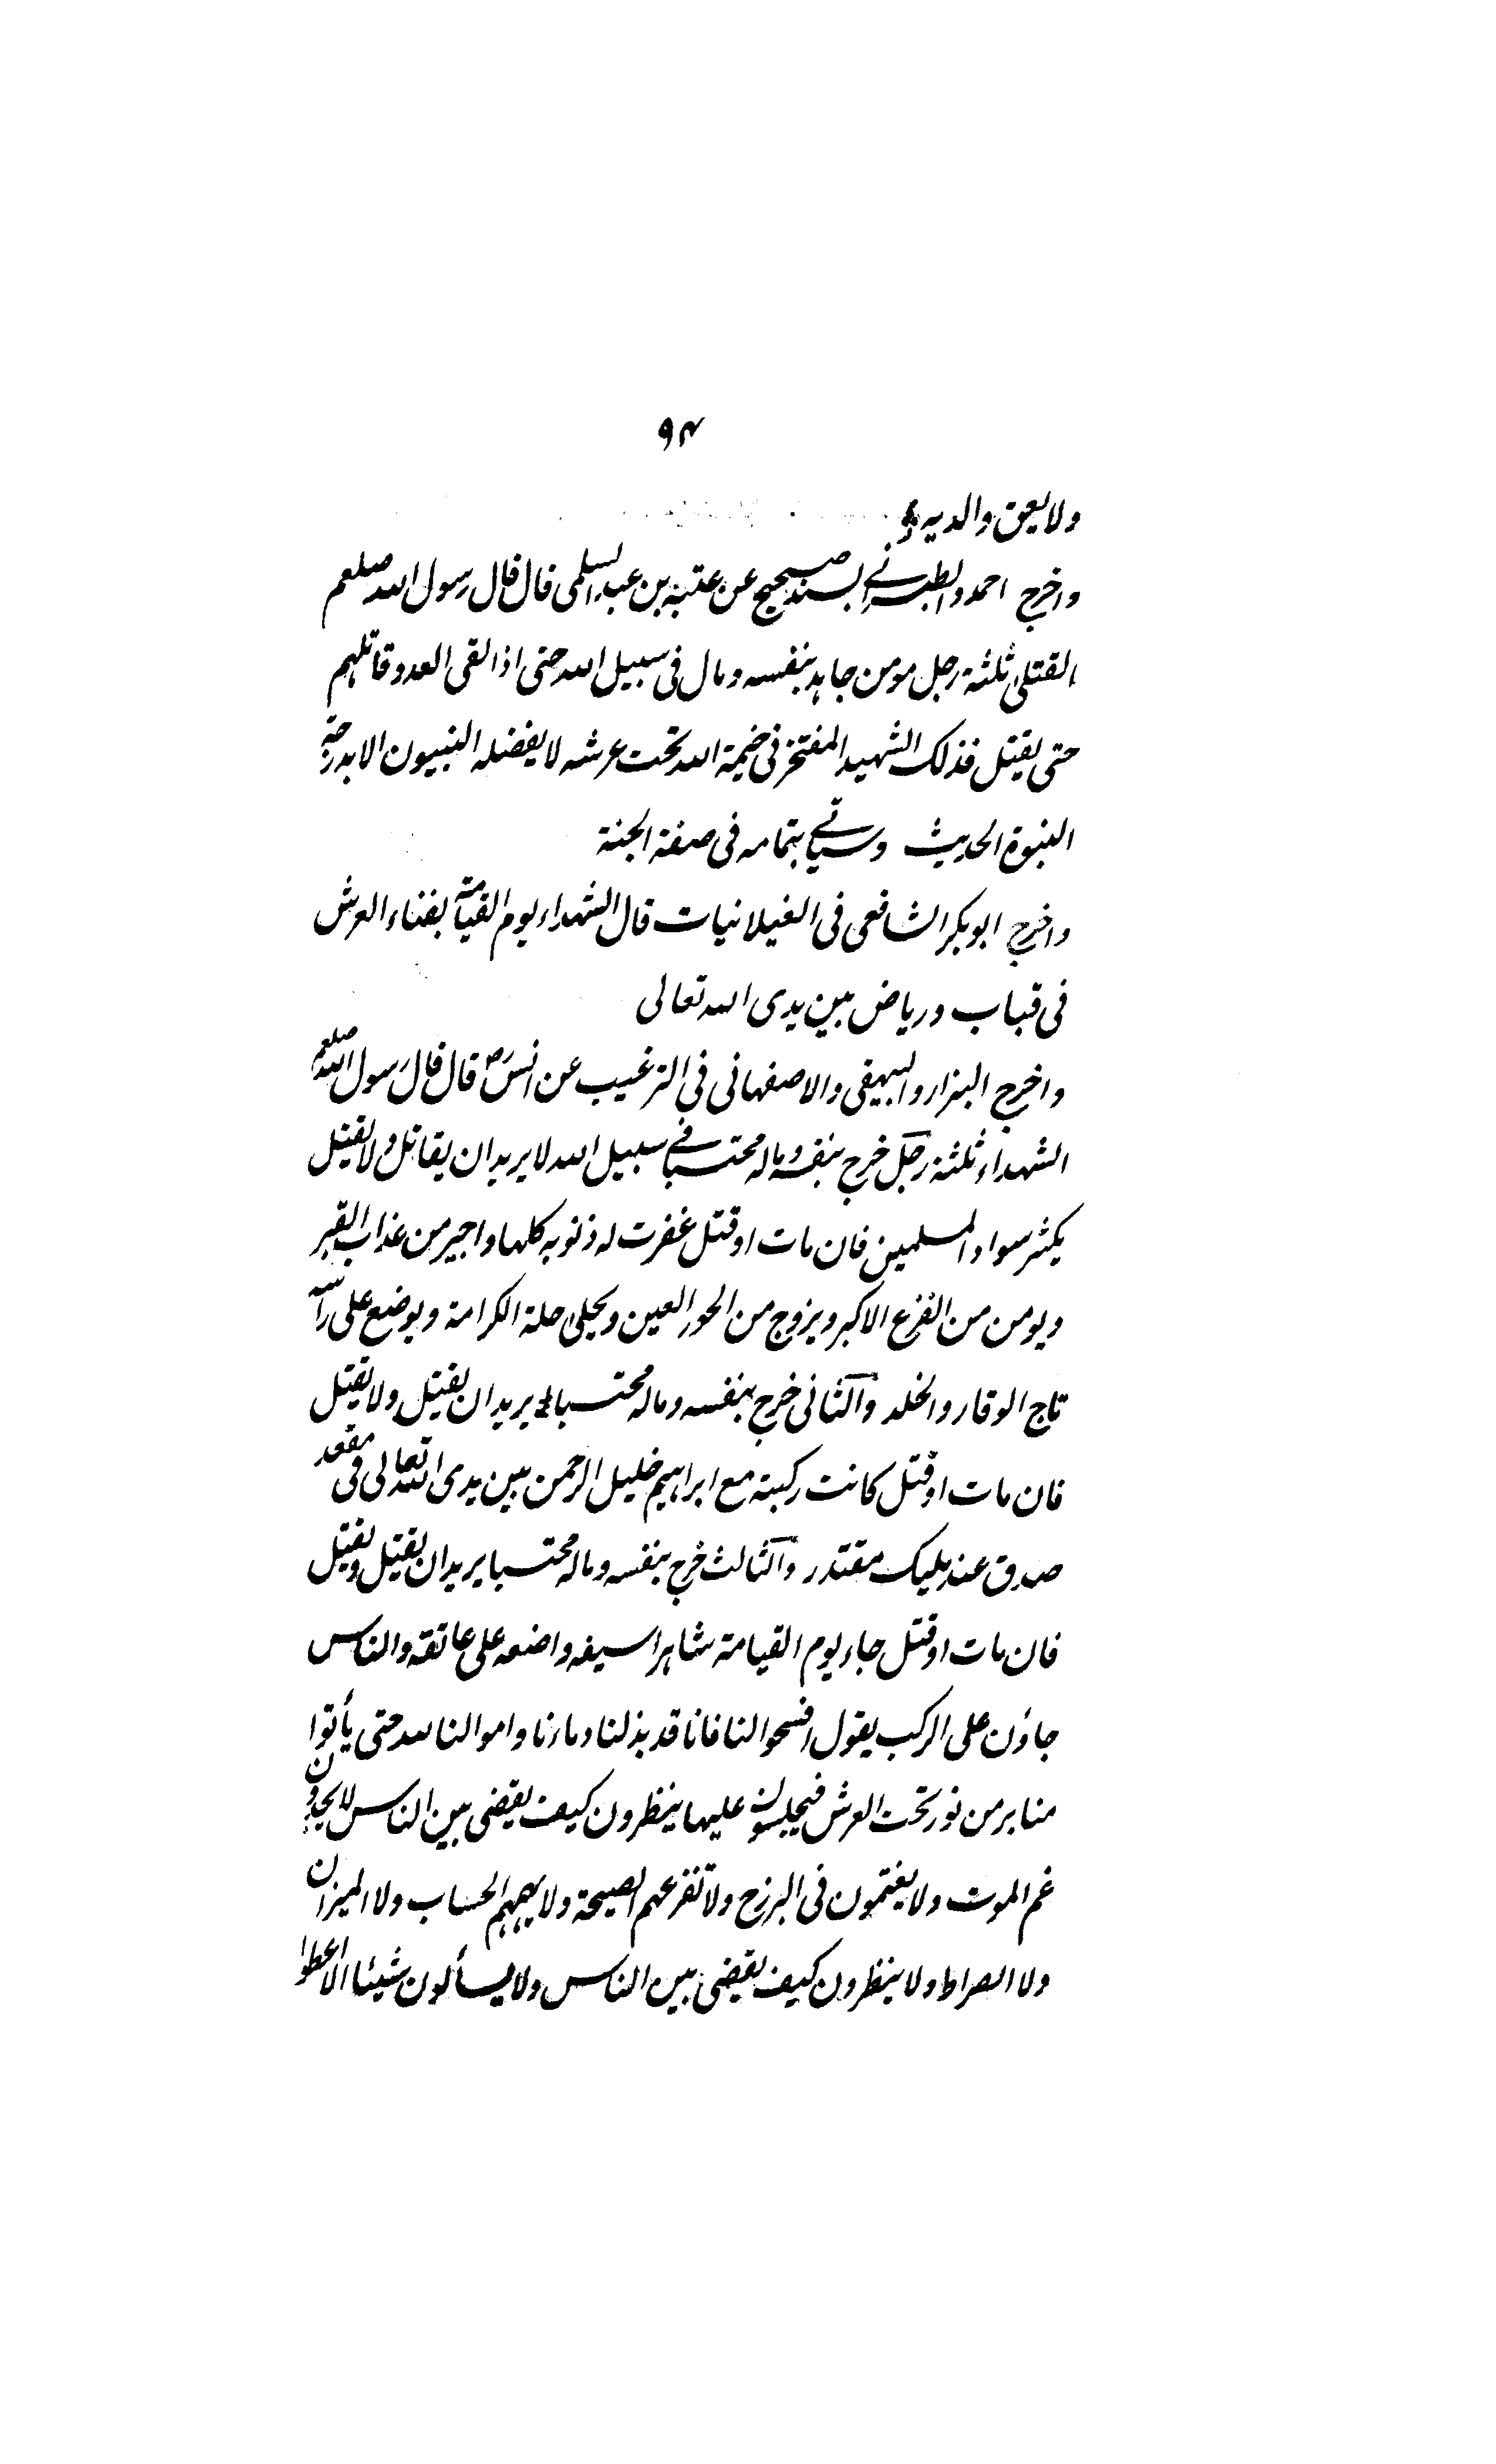 ۹۴
ولا يعق والديه
واخرج احمد والطبراني بسند صحيح عن عتبة بن عبد السلمى قال قال رسول الله صلعم
القتلى ثلثة رجل مومن جاهد بنفسه ومال فى سبيل الله حتى اذا لقى العدو قاتلهم
حتى يقتل فذلك الشهيد المفتخر فى خيمة الله تحت عرشه لا يفضله النبيون الا بدرجة
النبوة الحديث وسياتي بتمامه فى صفة الجنة
واخرج ابو بكر الشافعى فى الغيلانيات قال الشهداء يوم القيامة بفناء العرش
فى قباب ورياض بين يدى الله تعالى
واخرج البزار والبيهقى والاصفهانى فى الترغيب عن انس رض قال قال رسول الله صلعم
الشهداء ثلثة رجل خرج بنفسه وماله محتسبا في سبيل الله لا يريد ان يقاتل ولا يقتل
يكثر سواد المسلمين فان مات او قتل غفرت له ذنوبه كلها واجير من عذاب القبر
ويومن من الفزع الاكبر ويزوج من الحور العين ويحلى حلة الكرامة ويوضع على راسه
تاج الوقار والخلد والثانى خرج بنفسه وماله محتسبا يريد ان يقتل ولا يقتل
فان مات او قتل كانت ركبته مع ابراهيم خليل الرحمن بين يدى الله تعالى فى مقعد
صدق عند مليك مقتدر والثالث خرج بنفسه وماله محتسبا يريد ان يقتل ويقتل
فان مات او قتل جاء يوم القيامة شاهرا سيفه واضعه على عاتقه والناس
جاؤن على الركب يقول افسحوا لنا فانا قد بذلنا دماءنا واموالنا لله حتى يأتوا
منابر من نور تحت العرش فيجلسون عليها ينظرون كيف يقضى بين الناس لا يجدون
غم الموت ولا يغتمون فى البرزخ ولا تفزعهم الصيحة ولا يهمهم الحساب ولا الميزان
ولا الصراط ولا ينظرون كيف يقضى بين الناس ولا يسألون شيئا الا اعطوا